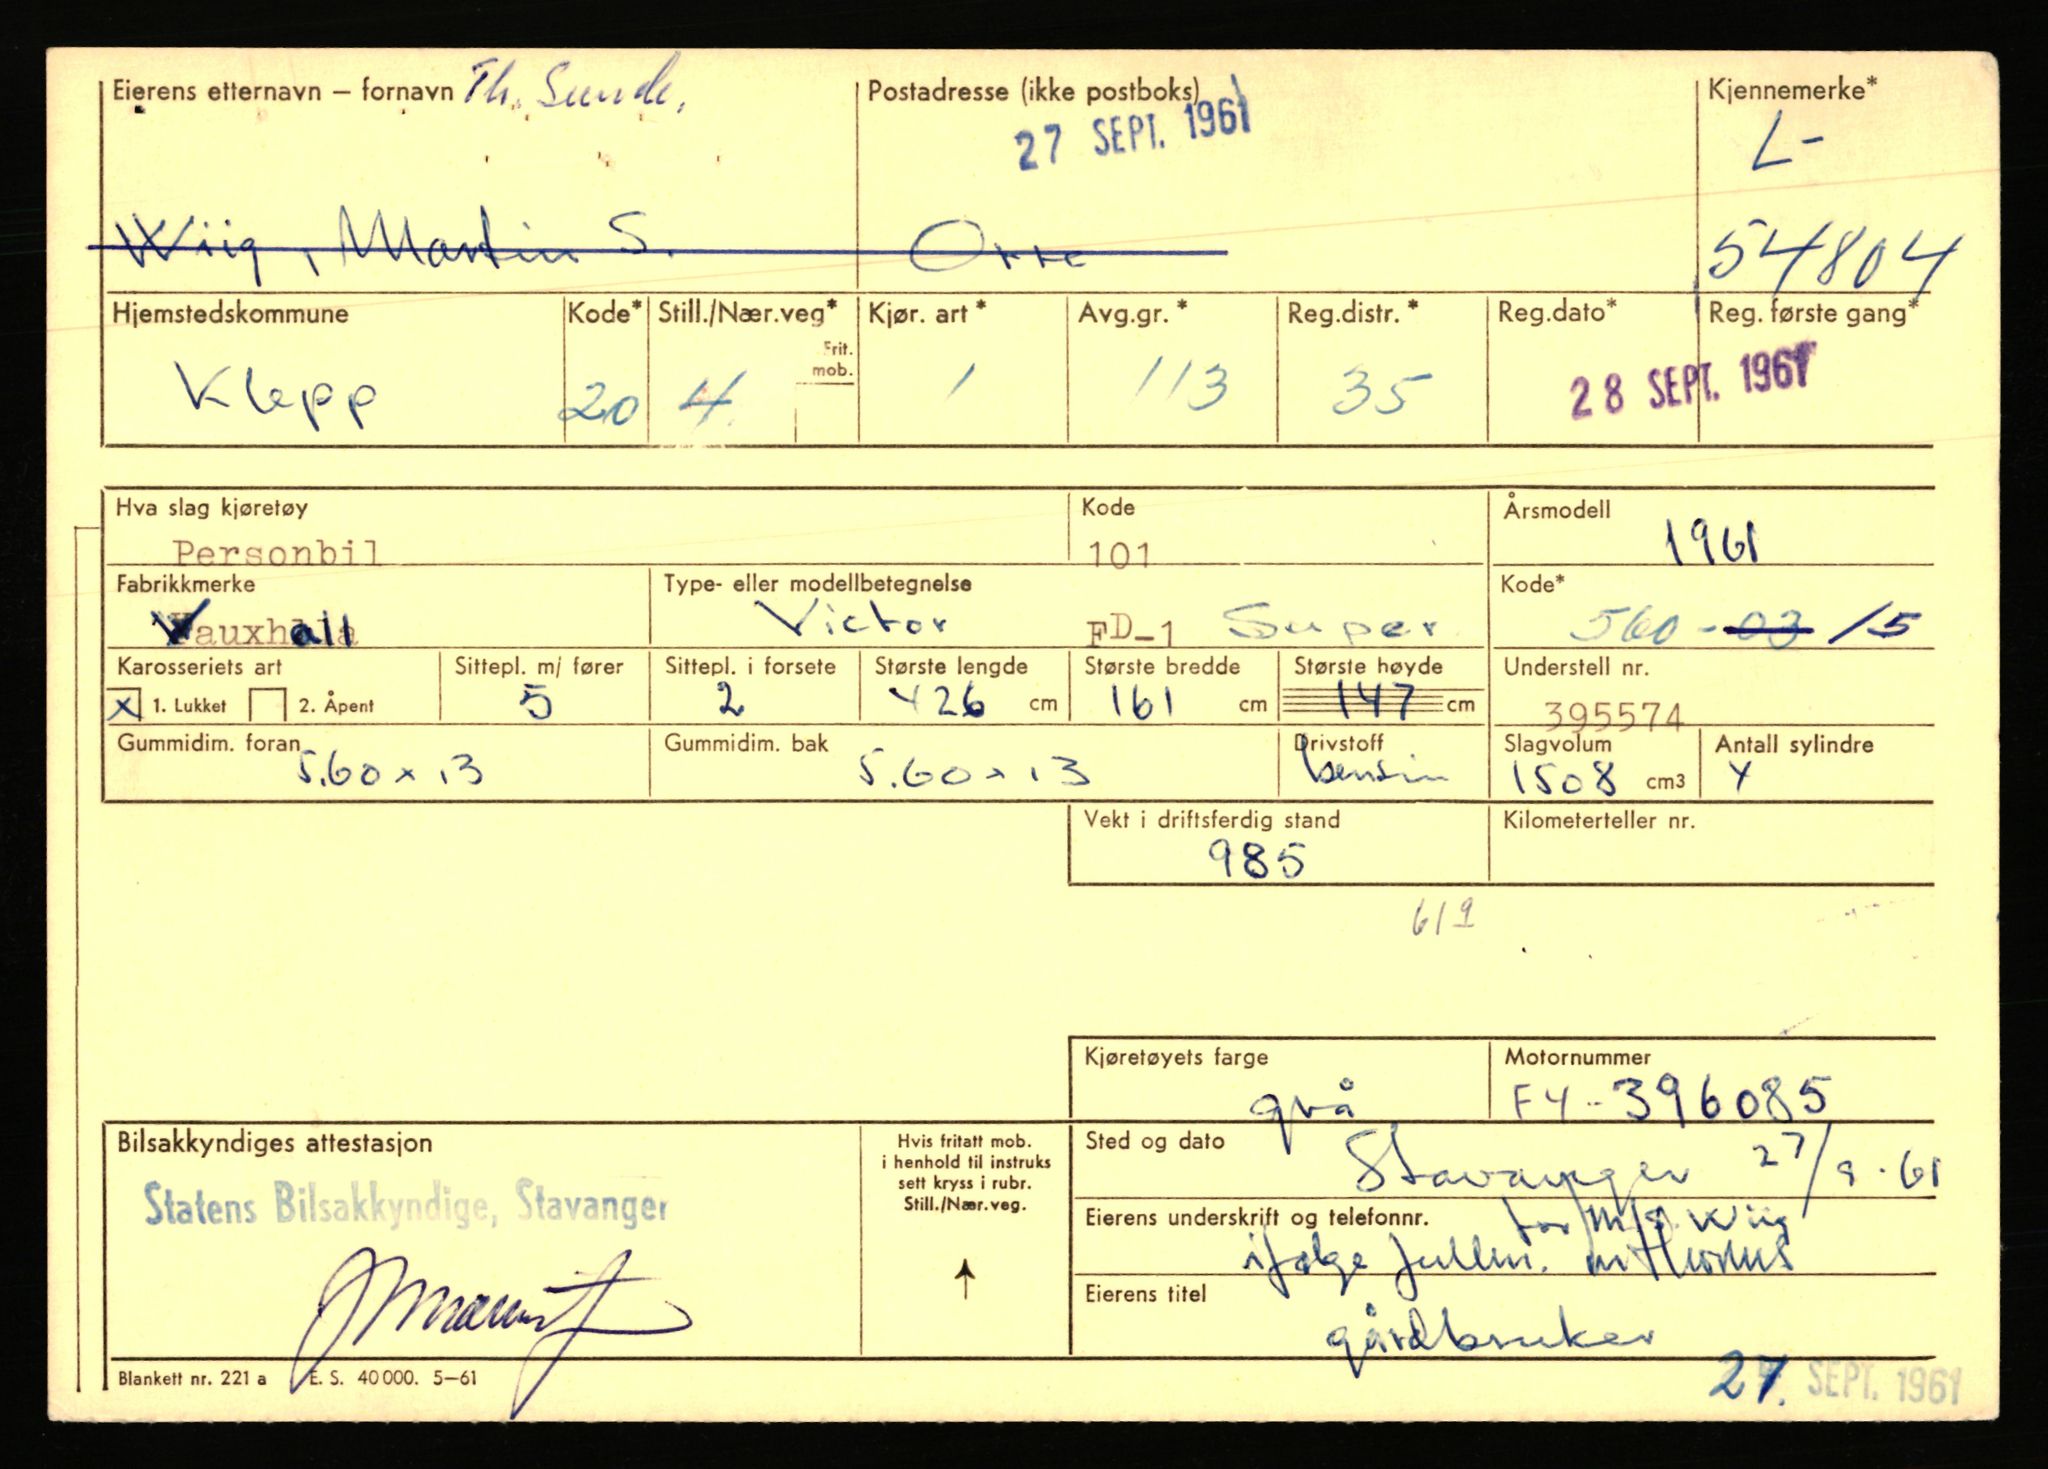 Eierens etternavn – fornavn Th. Sunde, Postadresse (ikke postboks) Kjennemerke*
27 SEPT. 1961 L-
Wiig, Martin S. Orre 54804
Hjemstedskommune Kode* Still./Nær.veg* Kjør. art * Avg.gr. * Reg.distr. * Reg.dato* Reg. første gang*
Frit. mob.
Klepp 20 4 1 113 35 28 SEPT. 1961
Hva slag kjøretøy Kode Årsmodell
Personbil 101 1961
Fabrikkmerke Type- eller modellbetegnelse Kode*
Vauxhall Victor FD-1 Super 560 - 03 /5
Karosseriets art Sittepl. m/ fører Sittepl. i forsete Største lengde Største bredde Største høyde Understell nr.
x 1. Lukket 2. Åpent 5 2 426 cm 161 cm 147 cm 395574
Gummidim. foran Gummidim. bak Drivstoff Slagvolum Antall sylindre
5.60 x 13 5.60 x 13 bensin 1508 cm3 4
Vekt i driftsferdig stand Kilometerteller nr.
985
619
Kjøretøyets farge Motornummer
grå F4-396085
Bilsakkyndiges attestasjon Hvis fritatt mob. i henhold til instruks sett kryss i rubr. Still./Nær.veg. Sted og dato
Stavanger 27/9.61
Statens Bilsakkyndige, Stavanger
Eierens underskrift og telefonnr. for M. S. Wiig
ifølge fullm.
Eierens titel
gårdbruker
Blankett nr. 221 a E. S. 40 000. 5–61 27. SEPT. 1961